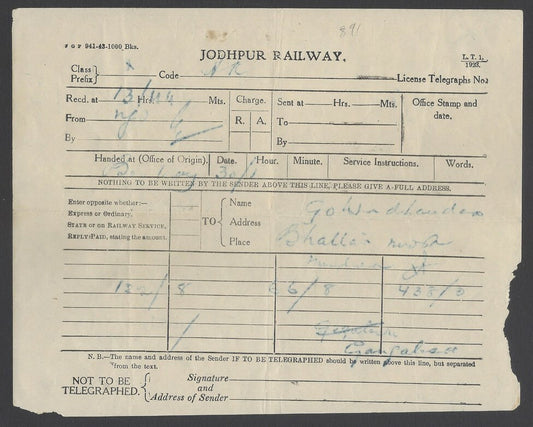 891
J G P 941-43-1000 Bks.
JODHPUR RAILWAY.
L. T. 1.
1923.
Class
Prefix} Code N R License Telegraphs No.
Recd. at 13/ Hrs. 44 Mts.
Charge.
Sent at Hrs. Mts.
Office Stamp and
date.
From
R. A.
To
By
By
Handed at (Office of Origin). Date. Hour. Minute. Service Instructions. Words.
30/1
NOTHING TO BE WRITTEN BY THE SENDER ABOVE THIS LINE, PLEASE GIVE A FULL ADDRESS.
Enter opposite whether:-
Express or Ordinary.
STATE or on RAILWAY SERVICE.
REPLY PAID, stating the amount.
TO
Name
Address
Place
Bhattar
132/8 66/8 433/3
N. B.—The name and address of the Sender IF TO BE TELEGRAPHED should be written above this line, but separated
from the text.
NOT TO BE
TELEGRAPHED.
Signature
and
Address of Sender